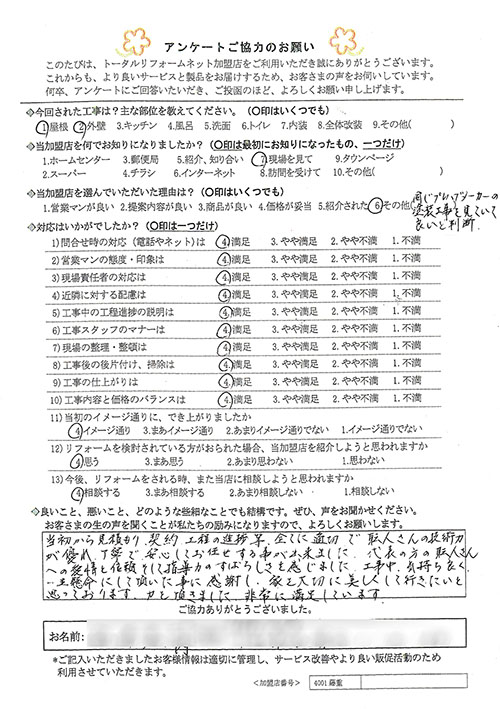 アンケートご協力のお願い
このたびは、トータルリフォームネット加盟店をご利用いただき誠にありがとうございます。
これからも、より良いサービスと製品をお届けするため、お客さまの声をお伺いしています。
何卒、アンケートにご回答いただき、ご投函のほど、よろしくお願い申し上げます。
◇今回された工事は？主な部位を教えてください。（○印はいくつでも）
1.屋根 2.外壁 3.キッチン 4.風呂 5.洗面 6.トイレ 7.内装 8.全体改装 9.その他( )
◇当加盟店を何でお知りになりましたか？（○印は最初にお知りになったもの、一つだけ）
1.ホームセンター 3.郵便局 5.紹介、知り合い 7.現場を見て 9.タウンページ
2.スーパー 4.チラシ 6.インターネット 8.訪問を受けて 10.その他( )
◇当加盟店を選んでいただいた理由は？（○印はいくつでも）
1.営業マンが良い 2.提案内容が良い 3.商品が良い 4.価格が妥当 5.紹介された 6.その他(
同じプレハブメーカーの
塗装工事を見ていて
良いと判断
◇対応はいかがでしたか？（○印は一つだけ）
1)問合せ時の対応（電話やネット)は 4.満足 3.やや満足 2.やや不満 1.不満
2)営業マンの態度・印象は 4.満足 3.やや満足 2.やや不満 1.不満
3)現場責任者の対応は 4.満足 3.やや満足 2.やや不満 1.不満
4)近隣に対する配慮は 4.満足 3.やや満足 2.やや不満 1.不満
5)工事中の工程進捗の説明は 4.満足 3.やや満足 2.やや不満 1.不満
6)工事スタッフのマナーは 4.満足 3.やや満足 2.やや不満 1.不満
7)現場の整理・整頓は 4.満足 3.やや満足 2.やや不満 1.不満
8)工事後の後片付け、掃除は 4.満足 3.やや満足 2.やや不満 1.不満
9)工事の仕上がりは 4.満足 3.やや満足 2.やや不満 1.不満
10)工事内容と価格のバランスは 4.満足 3.やや満足 2.やや不満 1.不満
11)当初のイメージ通りに、でき上がりましたか
4.イメージ通り 3.まあイメージ通り 2.あまりイメージ通りでない 1.イメージ通りでない
12)リフォームを検討されている方がおられた場合、当加盟店を紹介しようと思われますか
4.思う 3.まあ思う 2.あまり思わない 1.思わない
13)今後、リフォームをされる時、また当店に相談しようと思われますか
4.相談する 3.まあ相談する 2.あまり相談しない 1.相談しない
◇良いこと、悪いこと、どのような些細なことでも結構です。ぜひ、声をお聞かせください。
お客さまの生の声を聞くことが私たちの励みになりますので、よろしくお願いします。
当初から見積もり、契約、工程の進捗等、全てに適切で職人さんの技術力
が優れ、丁寧で安心してお任せする事が出来ました。代表の方の職人さん
への愛情と信頼そして指導力のすばらしさを感じました。工事中、気持ち良く、
一生懸命にして頂いた事に感謝し、家を大切に美しくして行きたいと
思っております。力を頂きました。非常に満足しています
ご協力ありがとうございました。
お名前:
*ご記入いただきましたお客様情報は適切に管理し、サービス改善やより良い販促活動のため
利用させていただきます。
<加盟店番号> 4001 藤重